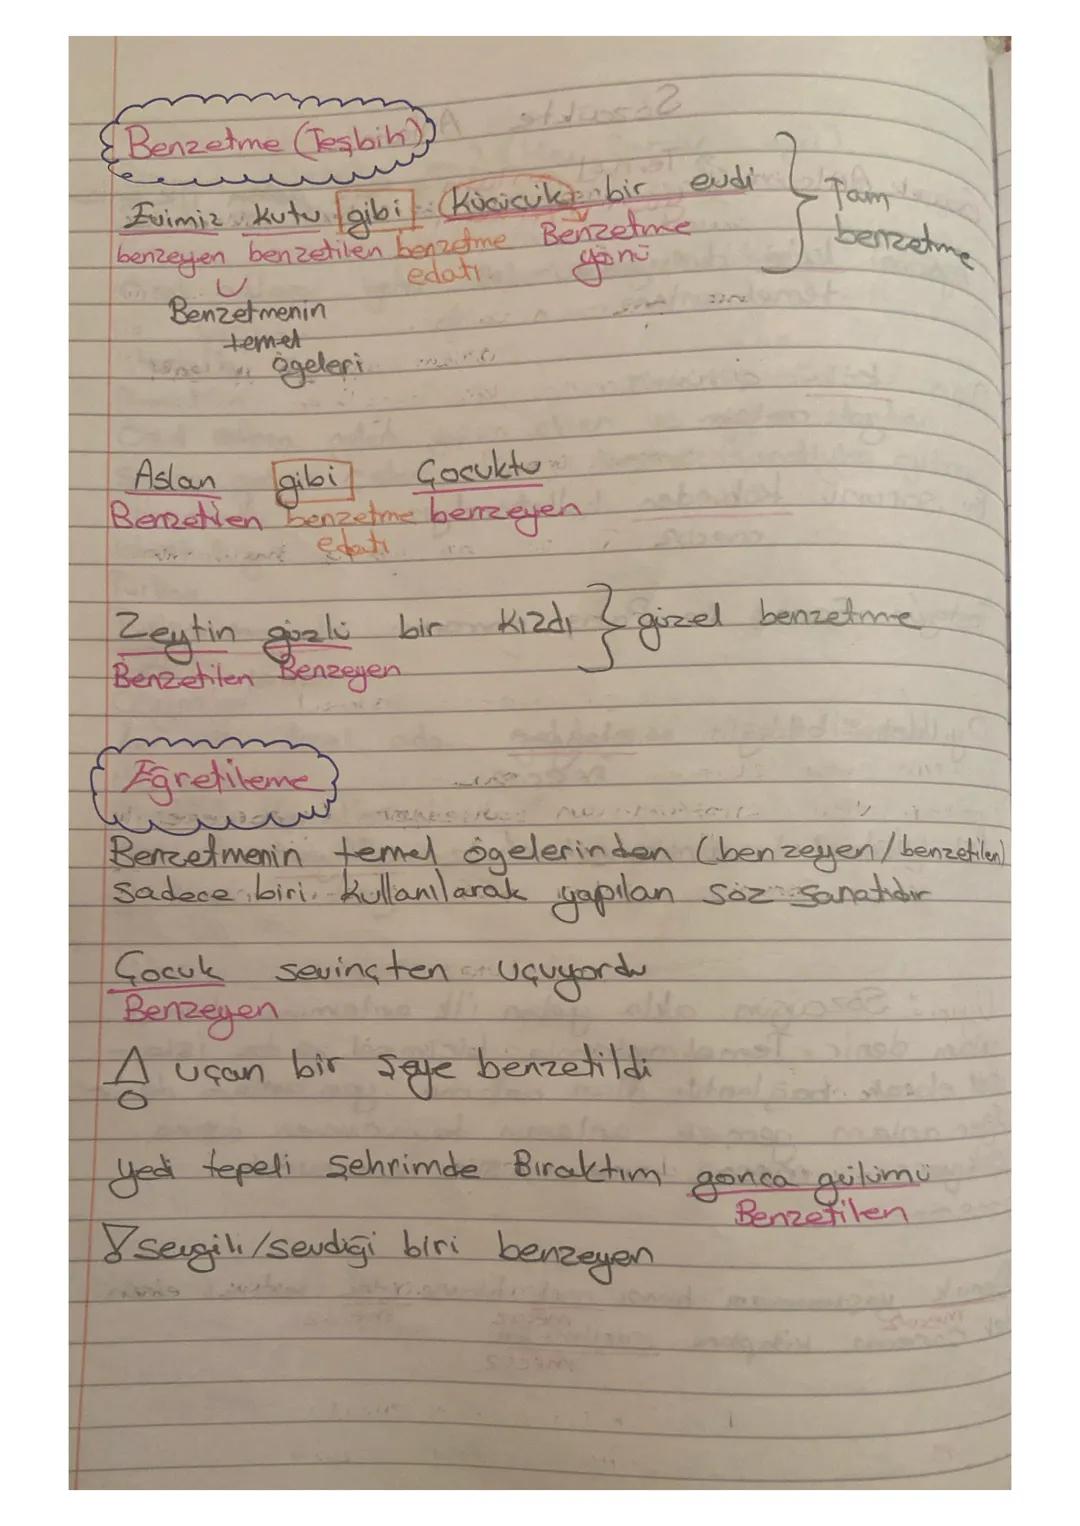 Benzetme (Teşbih)
Evimiz kutu gibi Küçücük bir evdi } Tam benzetme
benzeyen benzetilen benzetme edatı Benzetme yönü
Benzetmenin
temel
ögeleri
Aslan gibi Çocuktu
Benzetilen benzetme edatı benzeyen
Zeytin gözlü bir kızdı } güzel benzetme
Benzetilen Benzeyen
Eğretileme
Benzetmenin temel ögelerinden (benzeyen/benzetilen)
sadece biri kullanılarak yapılan söz sanatıdır
Çocuk sevinçten uçuyordu
Benzeyen
uçan bir şeye benzetildi
yedi tepeli şehrimde Bıraktım gonca gülümü
Benzetilen
sevgili/sevdiği biri benzeyen